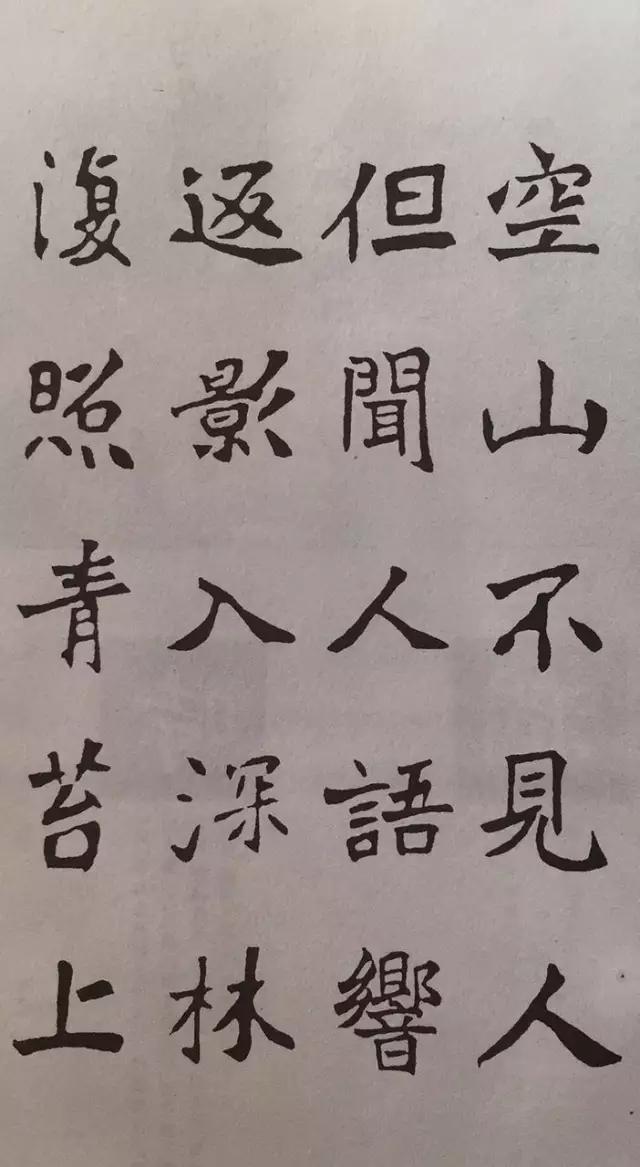 空山不見人
但聞人語響
返影入深林
復照青苔上